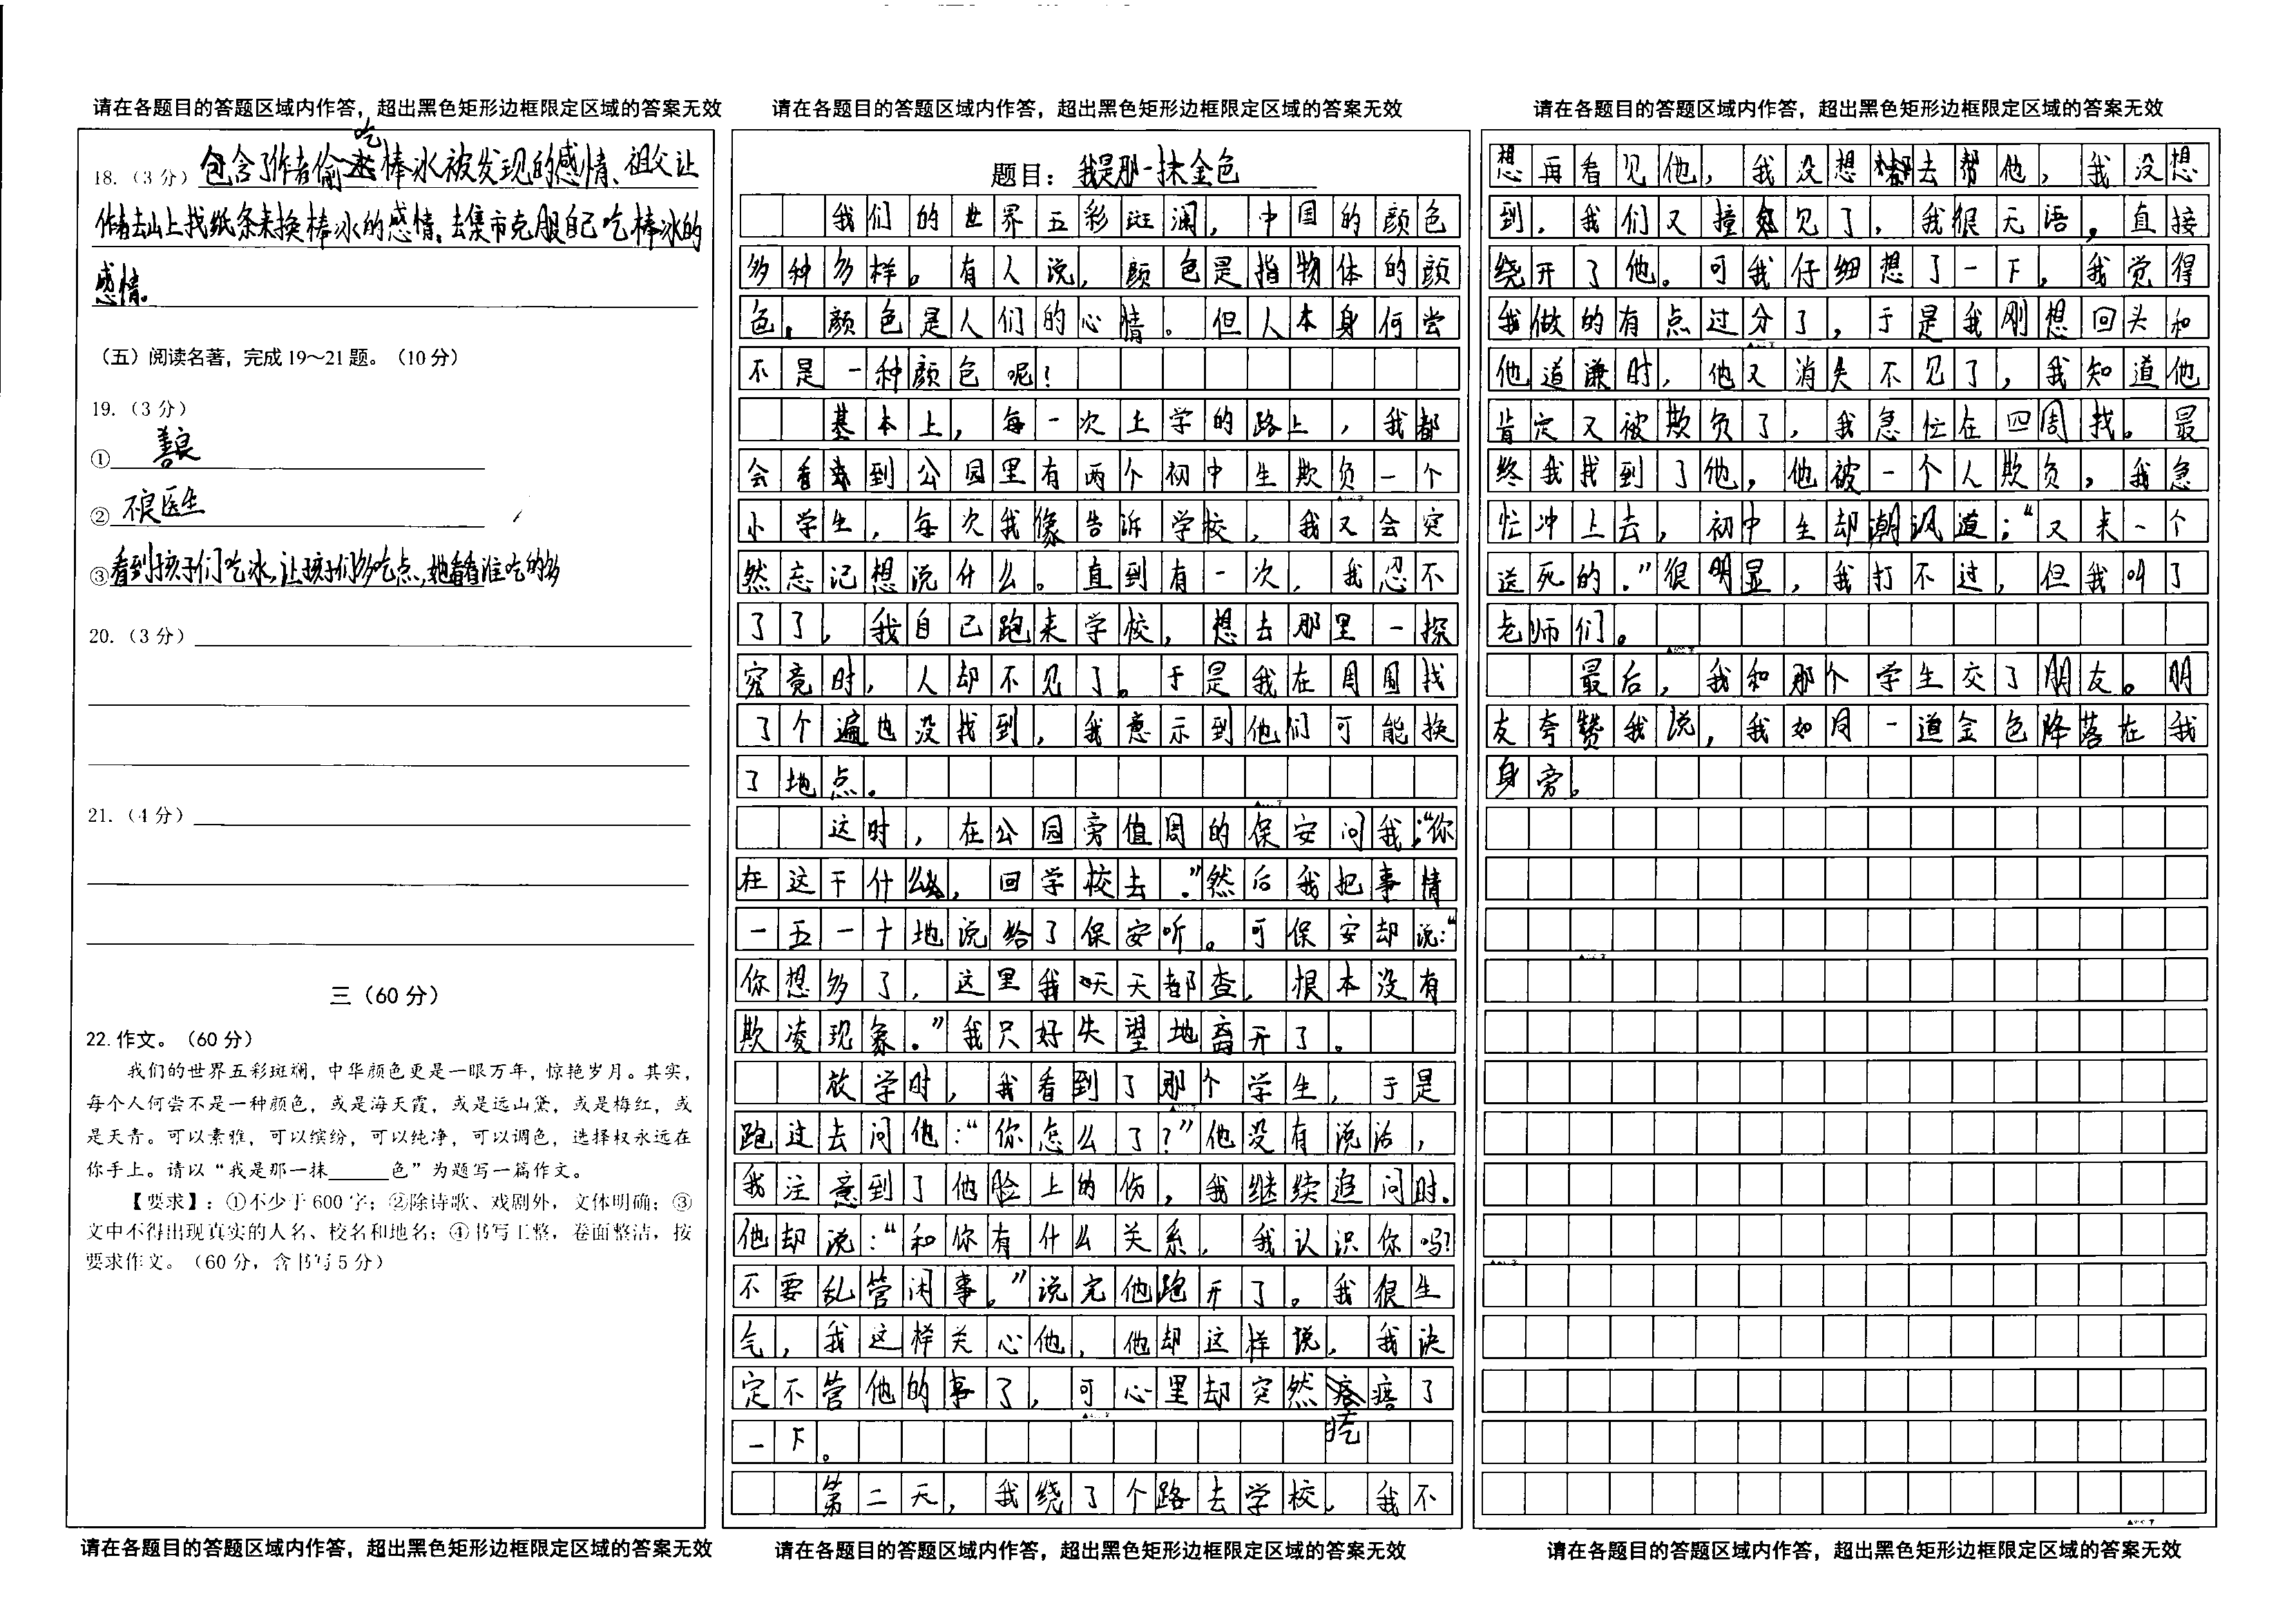 请在各题目的答题区域内作答，超出黑色矩形边框限定区域的答案无效
18.（3 分）包含了作者偷吃棒冰被发现的感情、祖父让
作者去山上找纸条来换棒冰的感情。去集市克服自己吃棒冰的
感情。
（五）阅读名著，完成 19～21 题。（10 分）
19.（3 分）
① 善良
② 不良医生
③看到孩子们吃冰，让孩子们多吃点，她看看谁吃的多
20.（3 分）
21.（4 分）
三（60 分）
22.作文。（60 分）
我们的世界五彩斑斓，中华颜色更是一眼万年，惊艳岁月。其实，
每个人何尝不是一种颜色，或是海天霞，或是远山黛，或是梅红，或
是天青。可以素雅，可以缤纷，可以纯净，可以调色，选择权永远在
你手上。请以“我是那一抹______色”为题写一篇作文。
【要求】：①不少于 600 字；②除诗歌、戏剧外，文体明确；③
文中不得出现真实的人名、校名和地名；④书写工整，卷面整洁，按
要求作文。（60 分，含书写 5 分）
请在各题目的答题区域内作答，超出黑色矩形边框限定区域的答案无效
请在各题目的答题区域内作答，超出黑色矩形边框限定区域的答案无效
题目：我是那一抹金色
我们的世界五彩斑澜，中国的颜色
多种多样。有人说，颜色是指物体的颜
色，颜色是人们的心情。但人本身何尝
不是一种颜色呢！
基本上，每一次上学的路上，我都
会看到公园里有两个初中生欺负一个
小学生，每次我像告诉学校，我又会突
然忘记想说什么。直到有一次，我忍不
了了，我自己跑来学校，想去那里一探
究竟时，人却不见了。于是我在周围找
了个遍也没找到，我意示到他们可能换
了地点。
这时，在公园旁值周的保安问我：“你
在这干什么，回学校去。”然后我把事情
一五一十地说给了保安听。可保安却说：“
你想多了，这里我天天都查，根本没有
欺凌现象。”我只好失望地离开了。
放学时，我看到了那个学生，于是
跑过去问他：“你怎么了？”他没有说话，
我注意到了他脸上的伤，我继续追问时。
他却说：“和你有什么关系，我认识你吗？
不要乱管闲事。”说完他跑开了。我很生
气，我这样关心他，他却这样说，我决
定不管他的事了，可心里却突然疙瘩了
一下。
第二天，我绕了个路去学校，我不
请在各题目的答题区域内作答，超出黑色矩形边框限定区域的答案无效
请在各题目的答题区域内作答，超出黑色矩形边框限定区域的答案无效
想再看见他，我没想去帮他，我没想
到，我们又撞见了，我很无语，直接
绕开了他。可我仔细想了一下，我觉得
我做的有点过分了，于是我刚想回头和
他道谦时，他又消失不见了，我知道他
肯定又被欺负了，我急忙在四周找。最
终我找到了他，他被一个人欺负，我急
忙冲上去，初中生却潮讽道：“又来一个
送死的。”很明显，我打不过，但我叫了
老师们。
最后，我和那个学生交了朋友。朋
友夸赞我说，我如同一道金色降落在我
身旁。
请在各题目的答题区域内作答，超出黑色矩形边框限定区域的答案无效